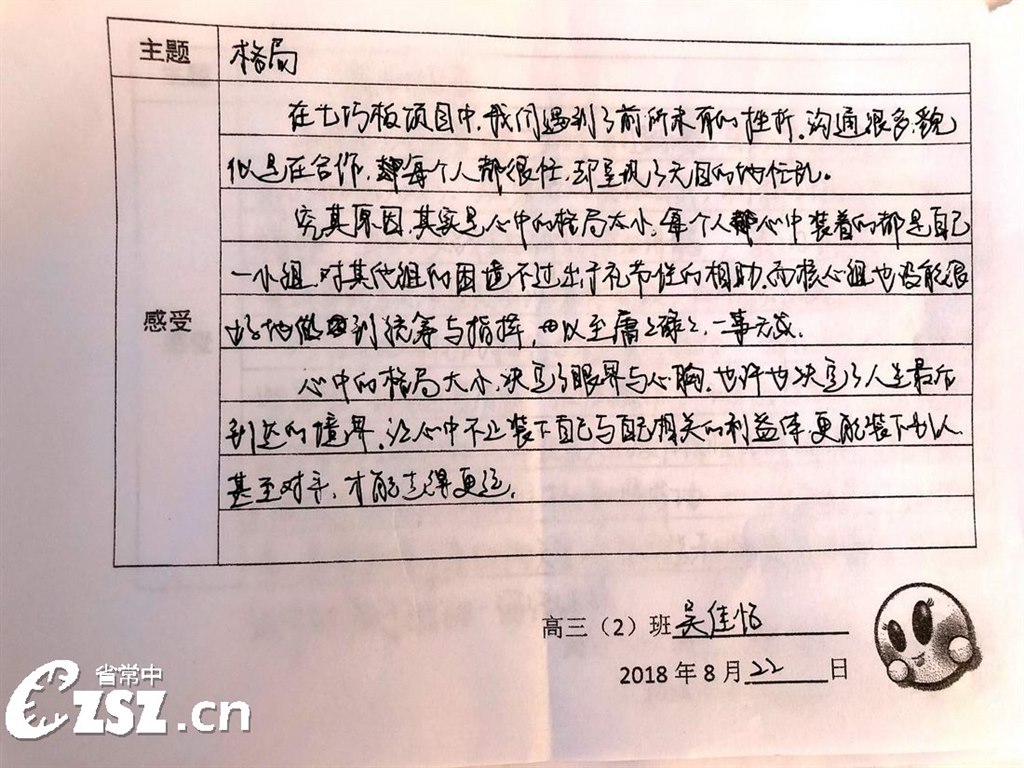 主题 格局
在七巧板项目中,我们遇到了前所未有的挫折。沟通很多,貌
似是在合作,每个人都很忙,却呈现了无目的地忙乱。
究其原因,其实是心中的格局大小,每个人心中装着的都是自己
一小组,对其他组的困境不过出于礼节性的相助,而核心组也没能很
感受
好地做到统筹与指挥,以至庸庸碌碌,一事无成。
心中的格局大小,决定了眼界与心胸,也许也决定了人生最后
到达的境界。让心中不止装下自己与自己相关的利益体,更能装下别人
甚至对手,才能走得更远。
高三(2)班吴佳怡
2018年8月22日
省常中
CZSZ.cn